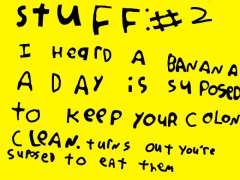 stuff:#2
I HEARD A BANANA
A DAY is suposed
to KEEP YOUR COLON
CLEAN. turns out you're
suposed to eat them